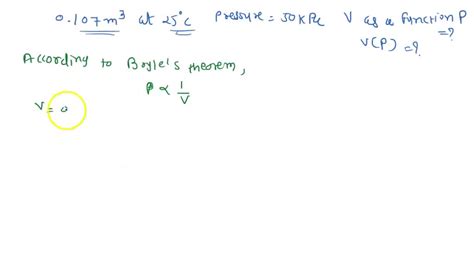 0.107 m³ at 25°C pressure = 50 kPa V as a function P =?
V(P) =?
According to Boyle's theorem,
P ∝ 1/V
V = 0